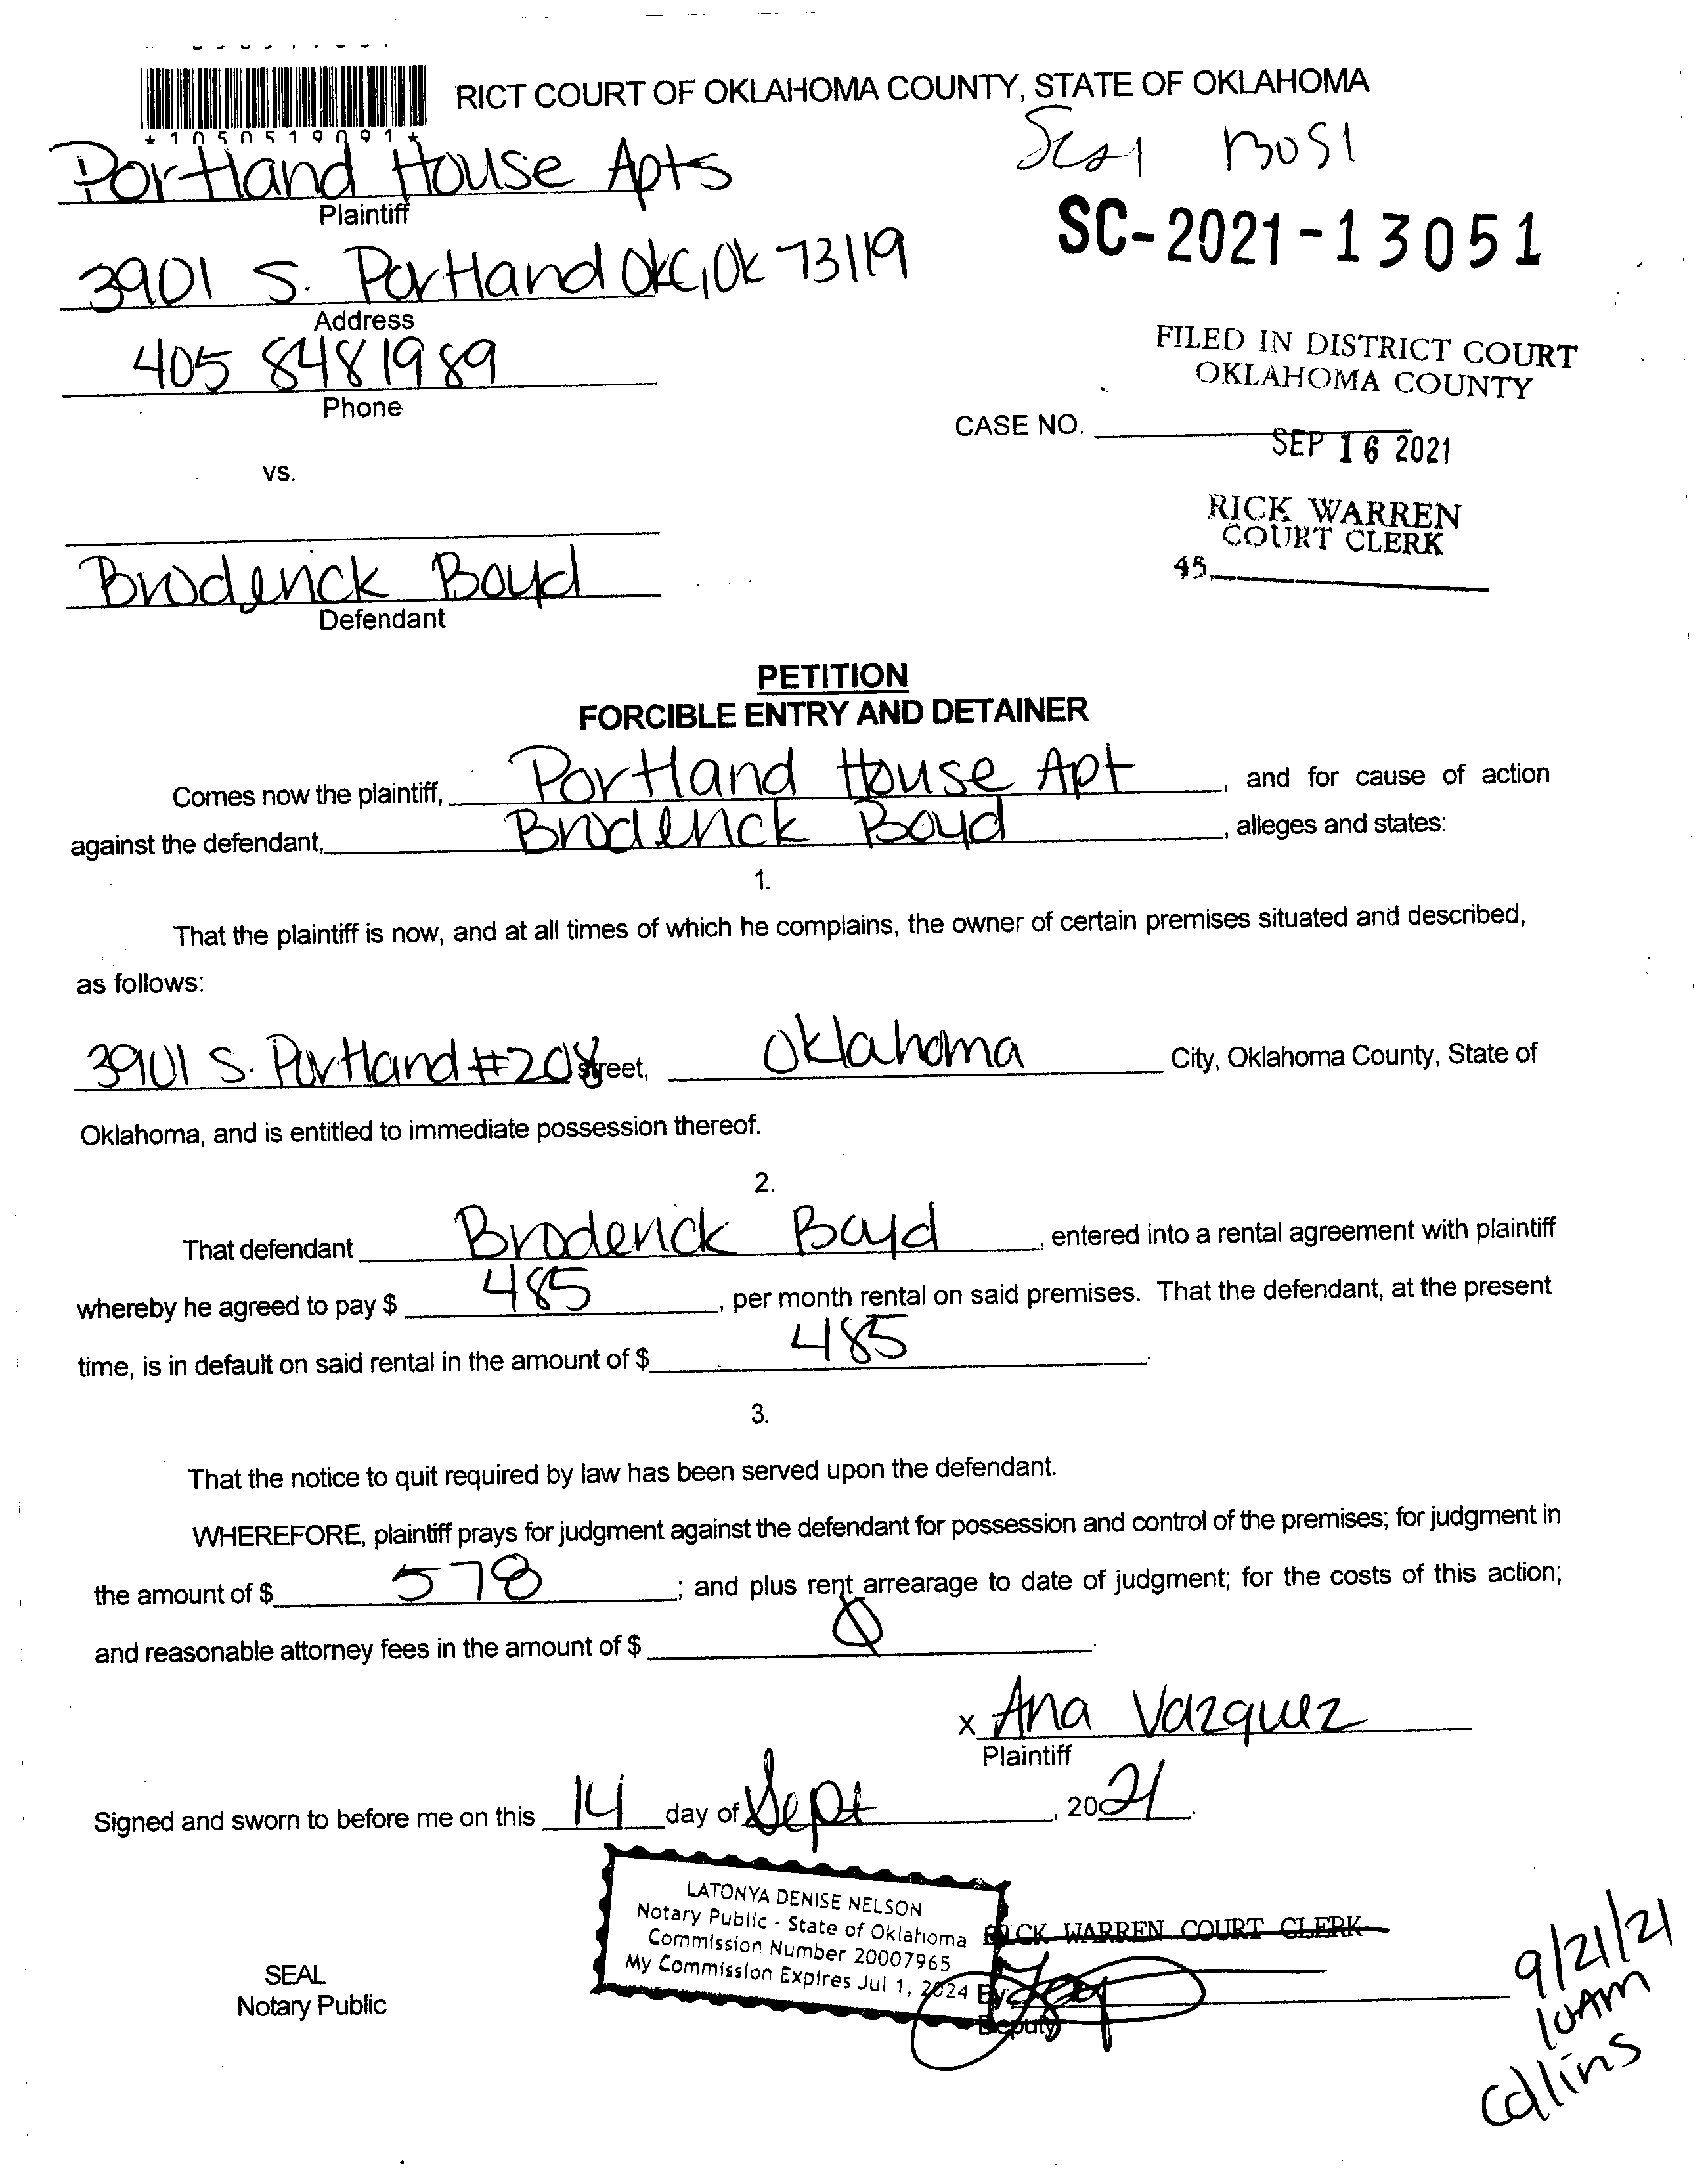 RICT COURT OF OKLAHOMA COUNTY, STATE OF OKLAHOMA
*1050519091*
Portland House Apts
Plaintiff
13051
SC-2021-13051
3901 S. Portland OKC, OK 73119
Address
405 8481989
Phone
FILED IN DISTRICT COURT
OKLAHOMA COUNTY
CASE NO.
SEP 16 2021
vs.
RICK WARREN
COURT CLERK
45
Broderick Boyd
Defendant
PETITION
FORCIBLE ENTRY AND DETAINER
Comes now the plaintiff, Portland House Apt, and for cause of action
against the defendant, Broderick Boyd, alleges and states:
1.
That the plaintiff is now, and at all times of which he complains, the owner of certain premises situated and described,
as follows:
3901 S. Portland #208 Street, Oklahoma City, Oklahoma County, State of
Oklahoma, and is entitled to immediate possession thereof.
2.
That defendant Broderick Boyd, entered into a rental agreement with plaintiff
whereby he agreed to pay $ 485, per month rental on said premises. That the defendant, at the present
time, is in default on said rental in the amount of $ 485.
3.
That the notice to quit required by law has been served upon the defendant.
WHEREFORE, plaintiff prays for judgment against the defendant for possession and control of the premises; for judgment in
the amount of $ 578; and plus rent arrearage to date of judgment; for the costs of this action;
and reasonable attorney fees in the amount of $ 0.
x Ana Vazquez
Plaintiff
Signed and sworn to before me on this 14 day of Sept, 2021.
LATONYA DENISE NELSON
Notary Public - State of Oklahoma
Commission Number 20007965
My Commission Expires Jul 1, 2024
RICK WARREN COURT CLERK
By:
Deputy
SEAL
Notary Public
9/21/21
10AM
Collins